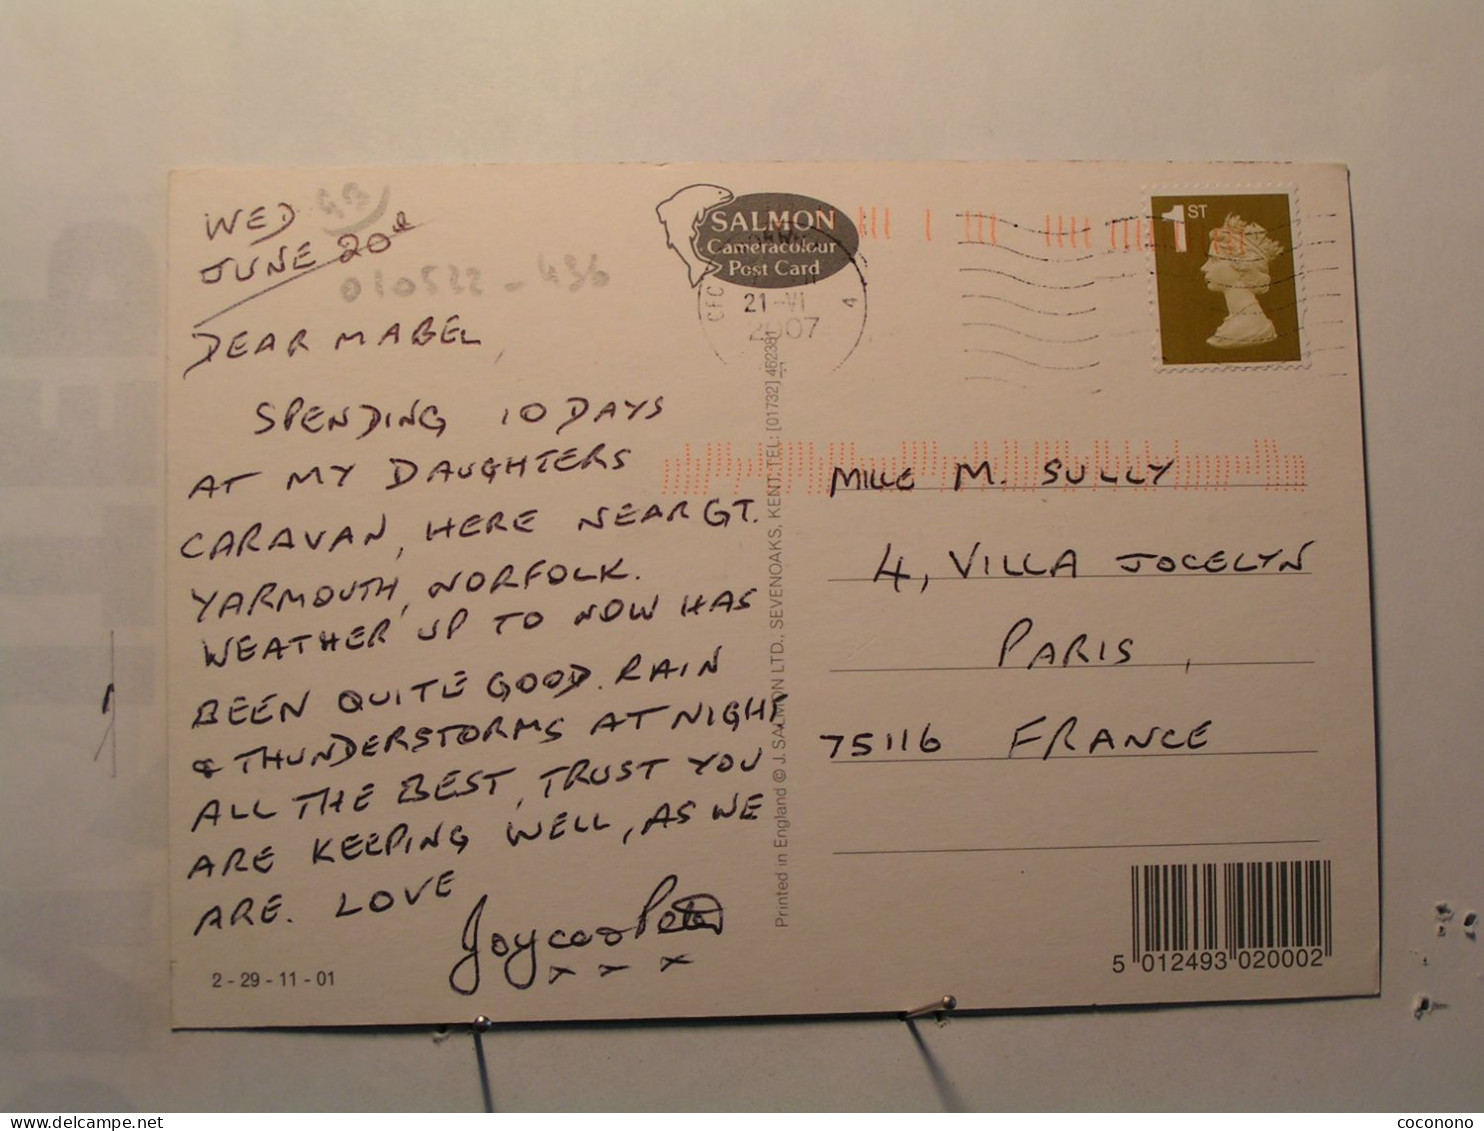 WED
JUNE 20th
010522-436
DEAR MABEL,
SPENDING 10 DAYS
AT MY DAUGHTERS
CARAVAN, HERE NEAR GT.
YARMOUTH, NORFOLK.
WEATHER UP TO NOW HAS
BEEN QUITE GOOD. RAIN
& THUNDERSTORMS AT NIGHT
ALL THE BEST, TRUST YOU
ARE KEEPING WELL, AS WE
ARE. LOVE
Joyce & Peter
x x x
2-29-11-01
SALMON
Cameracolour
Post Card
21-VI
2007
4
Printed in England © J. SALMON LTD., SEVENOAKS, KENT. TEL: [01732] 462381
1ST
MLLE M. SULLY
4, VILLA JOCELYN
PARIS,
75116 FRANCE
5 012493 020002
coconono